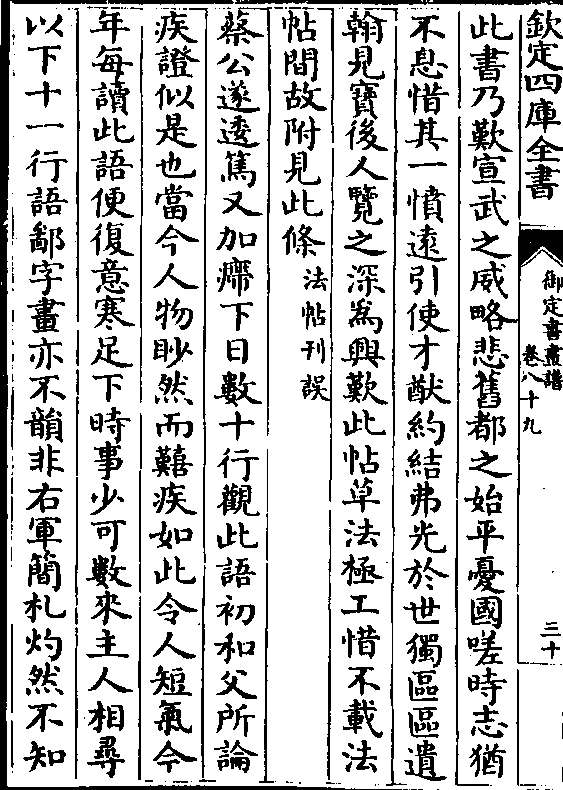 欽定四庫全書
御定書畫譜
卷八十九
三十
此書乃歎宣武之威略悲舊都之始平憂國嗟時志猶
不息惜其一憤遠引使才猷約結弗光於世獨區區遺
翰見寶後人覽之深為興歎此帖草法極工惜不載法
帖間故附見此條法帖刊誤
蔡公遂逶篤又加㿃下日數十行觀此語初和父所論
疾證似是也當今人物眇然而囏疾如此令人短氣今
年每讀此語便復意寒足下時事少可數來主人相尋
以下十一行語鄙字畫亦不韻非右軍簡札灼然不知